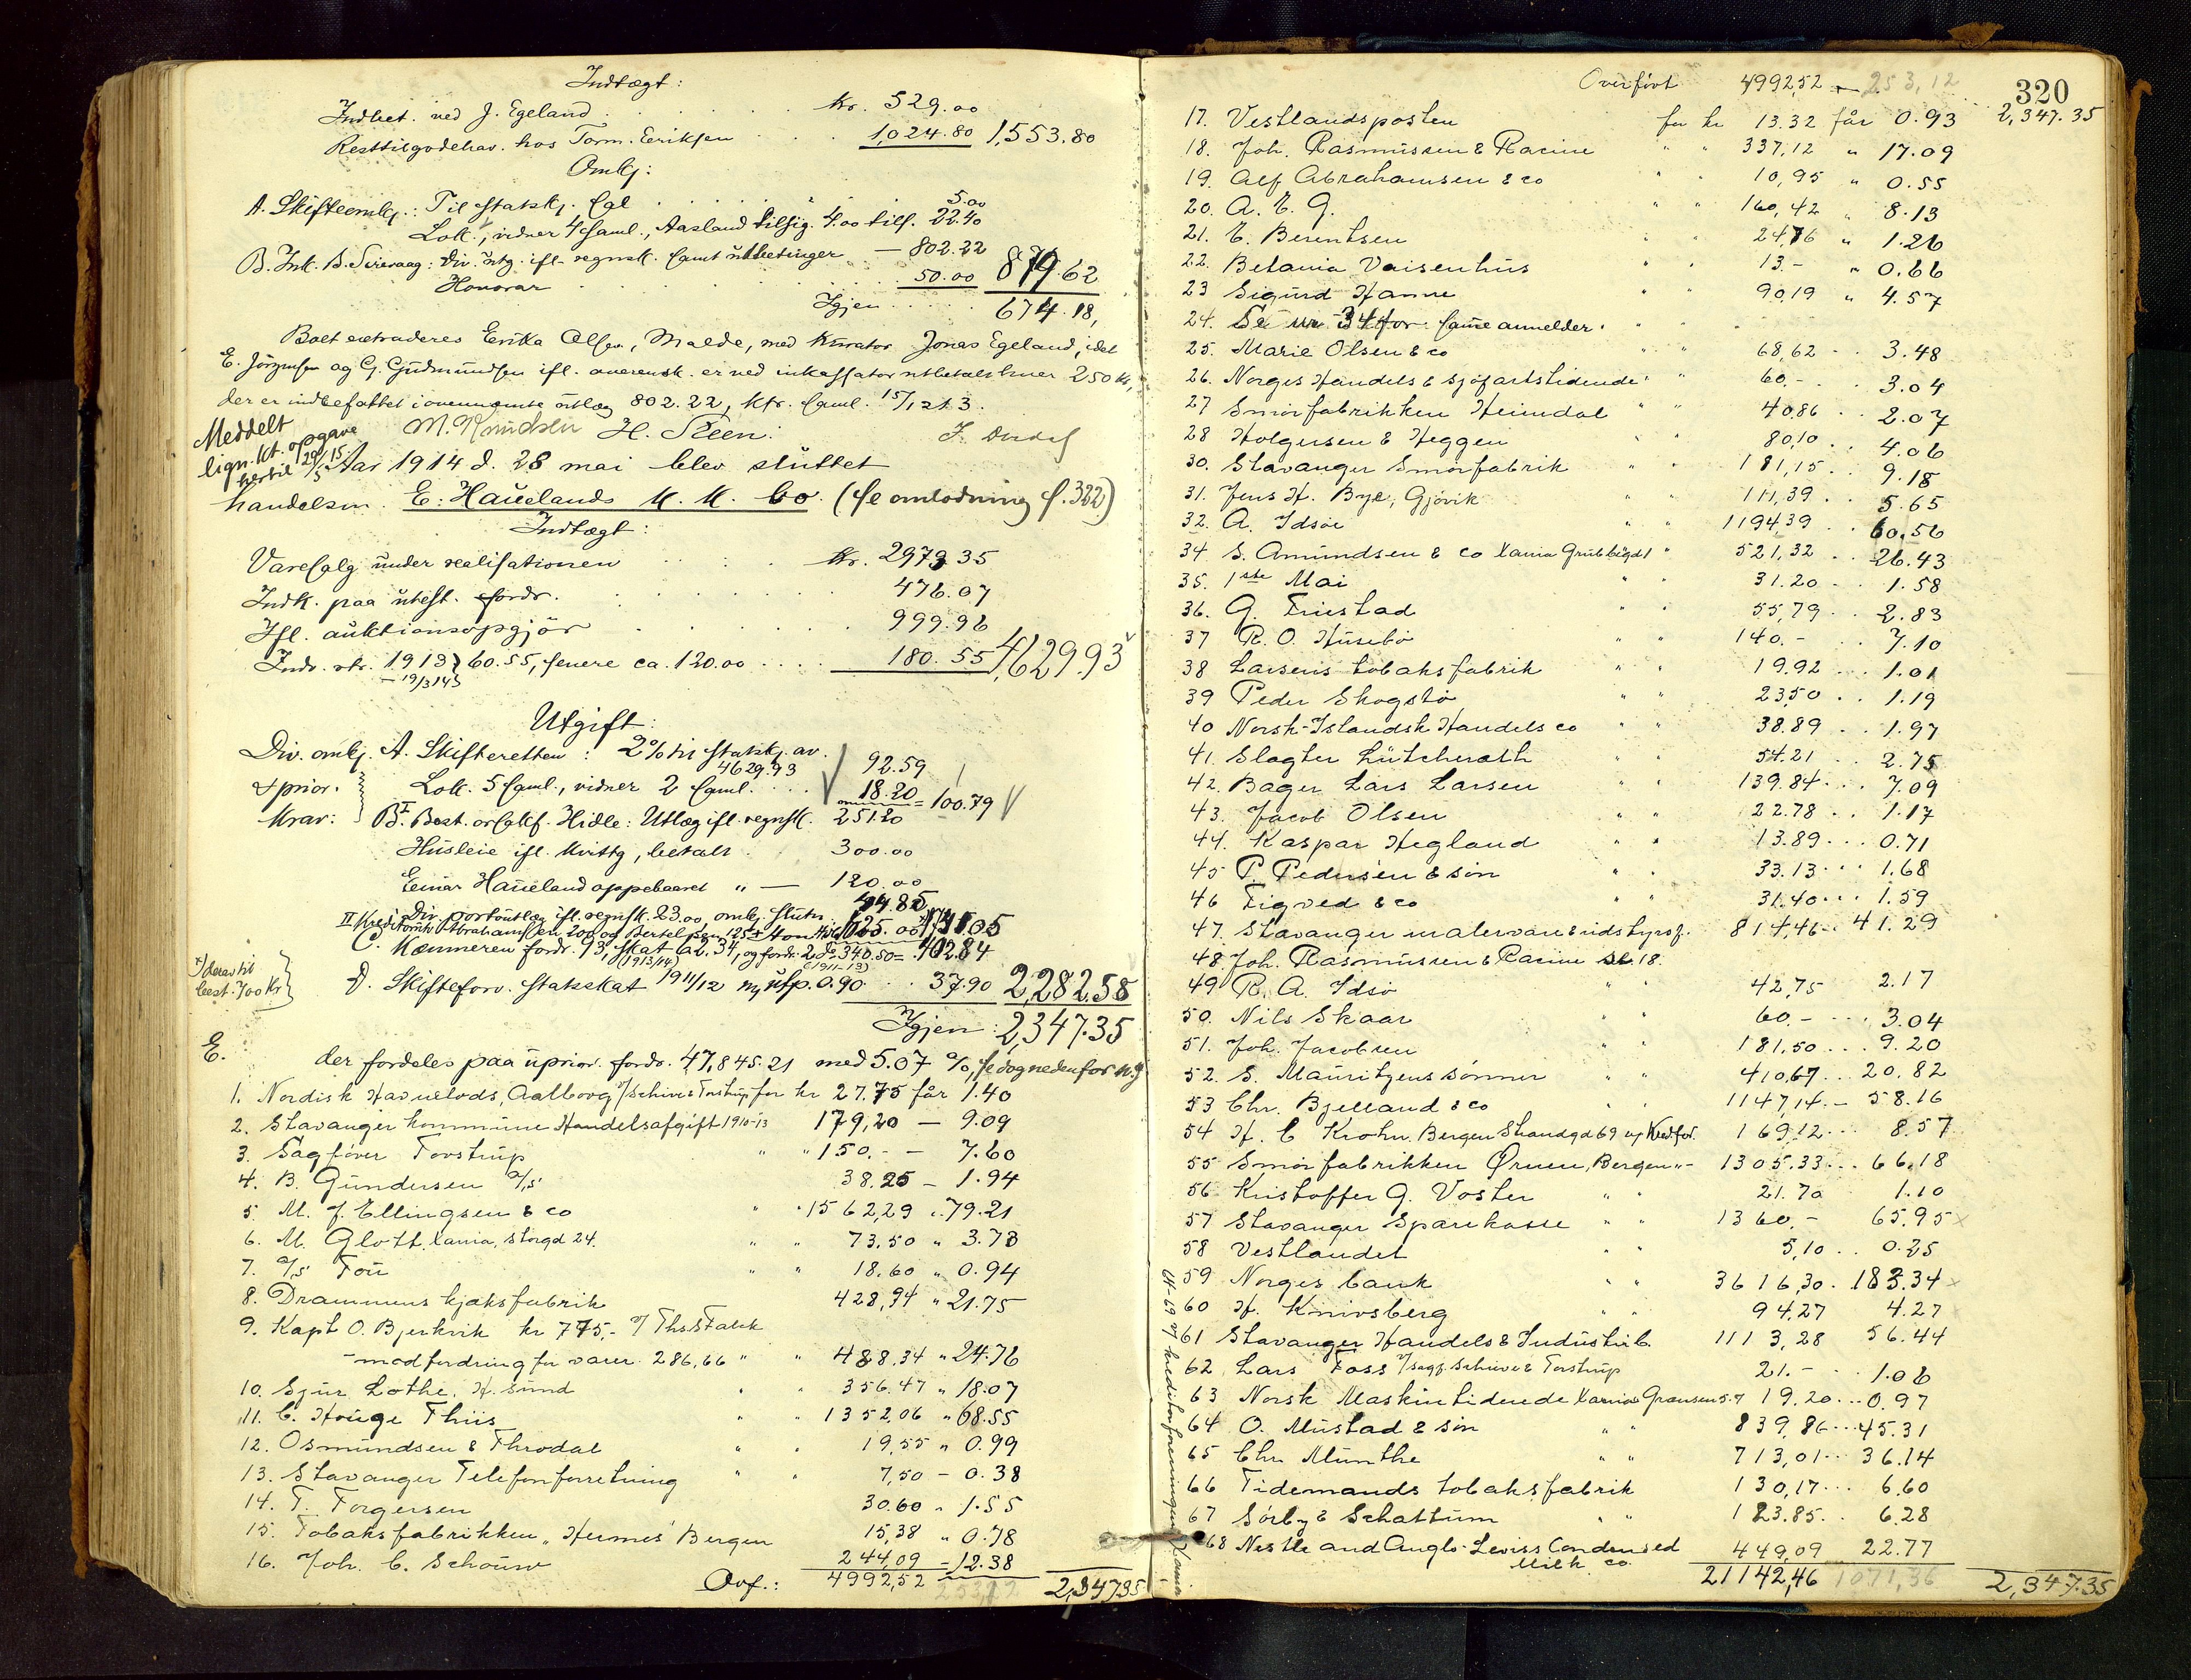 Indtægt:
Indbet. ved J. Egeland . . . . kr. 529.00
Resttilgodehav. hos Torm. Eriksen . . . 1,024.80 1,553.80
Omkj:
A. Skifteomkj.: Til statskj. Cal . . . 5.00
Lok., vidner 4 saml., Aasland tilsig. 4.00 tils. 22.40
B. Ink. B. Sirevaag: Div. utg. ifl. regnsk. samt utbetinger — 802.22
Honorar . . . 50.00 879.62
Igjen . . . 674.18,
Boet extraderes Erika Olsen, Malde, med kurator Jonas Egeland, idet
E. Jörgensen og G. Gudmundsen ifl. averensk. er ved inkassator utbetalt hver 250 kr,
der er indbefattet i ovennævnte utlæg 802.22, kfr. saml. 15/12 13.
Meddelt
lign.kt. opgave
hertil 29/5 15
M. Knudsen H. Steen:
Aar 1914 d. 28 mai blev sluttet
handelsm. E. Hauelands K. K. bo. (se omlodning f. 322)
Indtægt:
Varesalg under realisationen . . . kr. 2973 35
Indk. paa utest. fordr. . . . 476.07
Ifl. auktionsopgjör . . . 999.96
Indv. rtr. 1913 60.55, senere ca. 120.00 . . . 180.55 4,629.93
— 19/3 14
Utgift:
Div. omkj. A. Skifteretten: 2% til statskj. av
4629.93 92.59
& prior. Lok. 5 saml., vidner 2 saml. . . . 18.20 = 100.79
krav: B. I. Best. orsakf. Hidle: Utlæg ifl. regnsk. 251.20
Husleie ifl. kvittg, betalt . 300.00
Einar Haueland oppebaaret " — 120.00
Div. portoutlæg ifl. regnsk. 23.00, omkj. slutn. 44.85
II Kreditorutv. Abrahamsen 200 og Bertelsen 125 + Hon. Hidle 625.00
C. Kæmneren fordr. 93, skat 62.34, og fordr. 2 do 340.50 = 402.84
(1913/14) (1911-13)
x) derav til
best. 700 kr
D. Skifteforv. statsskat 1911/12 utp. 0.90 . . 37.90 2,282.58
Igjen: 2,347.35
E. der fordeles paa uprior. fordr. 47,845.21 med 5.07 %, se dog nedenfor n. 9
1. Nordisk Havnelods, Aalborg v/ Schiue & Torstrup for kr 27.75 får 1.40
2. Stavanger kommune Handelsafgift 1910-13 179,20 — 9.09
3. Sagförer Torstrup " " 150.- — 7.60
4. B. Gundersen A/S 38.25 — 1.94
5. M. J. Ellingsen & co " " 1562,29 " 79.21
6. M. Glott Xania, Storgd 24. " " 73,50 " 3.73
7. A/S Tou " " 18.60 " 0.94
8. Drammens kjæksfabrik 428,94 " 21.75
9. Kapt O. Bjerkvik kr 775,- v/ Ths. S. Falck
- modfordring for varer 286,66 " " 488,34 " 24.76
10. Sjur Lothe, H. sund " " 356.47 " 18.07
11. C. Houge Thiis " " 1352,06 " 68.55
12. Osmundsen & Throdal " " 19,55 " 0.99
13. Stavanger Telefonforretning " " 7,50 — 0.38
14. T. Torgersen 30.60 " 1.55
15. Tobaksfabrikken "Hermes" Bergen 15,38 " 0.78
16. Joh. C. Schouw 244,09 — 12.38
Ovf.: 4992,52 253,12 2,347.35
320
Overfört 4992,52 — 253,12
17. Vestlandsposten for kr 13.32 får 0.93 2,347.35
18. Joh. Rasmussen & Racine " " 337,12 " 17.09
19. Alf Abrahamsen & co " " 10,95 " 0.55
20. A. E. G. " " 160,42 " 8.13
21. E. Berentsen " " 24,76 " 1.26
22. Betania Vaisenhus " " 13.- " 0.66
23 Sigurd Hanne " " 90,19 " 4.57
24. Se nr 34 for samme anmelder.
25. Marie Olsen & co " " 68,62 . . 3.48
26. Norges Handels & sjöfartstidende " " 60.- . . 3.04
27 Smörfabrikken Heimdal " " 40,86 . . 2.07
28 Holgersen & Heggen " " 80,10 . . 4.06
30. Stavanger Smörfabrik " " 181,15 . . 9.18
31. Jens H. Bye, Gjövik " " 111,39 . . 5.65
32. A. Idsöe " " 1194,39 . . 60.56
34 S. Amundsen & co Xania Grubbegd 1 " 521,32 . . 26.43
35. 1ste Mai " " 31.20 . . 1.58
36. G. Friestad " " 55,79 . . 2.83
37 R. O. Husebö " " 140.- . . 7.10
38 Larsens tobaksfabrik " " 19.92 . . 1.01
39 Peder Skogstö " " 23,50 . . 1.19
40 Norsk-Islandsk Handels co " " 38.89 . . 1.97
41. Slagter Lütcherath " 54.21 . . 2.75
42. Bager Lars Larsen " " 139.84 . . 7.09
43. Jacob Olsen " " 22.78 . . 1.17
44. Kaspar Hegland " " 13.89 . . 0.71
45 P. Pedersen & sön " " 33.13 . . 1.68
46 Tigved & co " " 31.40 . . 1.59
47. Stavanger malervare & udstyrsf. 814,46 . . 41.29
48 Joh. Rasmussen & Racine se 18.
49 R. A. Idsö " " 42,75 2.17
50. Nils Skaar " " 60.- . . 3.04
51. Joh. Jacobsen " " 181,50 . . 9.20
52. S. Mauritzens sönner " " 410,67 . . 20.82
53 Chr. Bjelland & co " " 1147,14 . — 58.16
54 H. C Krohn. Bergen Strandgd 69 v/ Kred.for. 169,12 . . 8.57
55 Smörfabrikken Örnen, Bergen " - 1305.33 . . 66.18
56 Kristoffer G. Voster " " 21.70 1.10
57 Stavanger Sparekasse " " 1360.- 65.95 x
58 Vestlandet " " 5,10 . . 0.25
59 Norges bank " " 3616,30 . 183.34 x
60 H. Knivsberg " " 94,27 4.27
61 Stavanger Handels & Industrib. 1113,28 56.44
62 Lars Foss v/ sagf. Schiue & Torstrup 21.- . 1.06
63 Norsk Maskintidende Xania Grænsen 5.7 19.20 . . 0.97
64 O. Mustad & sön " " 839,86 . . 45.31
65 Chr Munthe " " 713,01 . . 36.14
66 Tidemands tobaksfabrik 130,17 . . 6.60
67 Sörby & Schattum " " 123.85 . . 6.28
68 Nestle and Anglo-Swiss Condensed
Milk co. 449,09 22.77
21142,46 1071,36 2,347.35
64-69 v/ kreditorforeningen